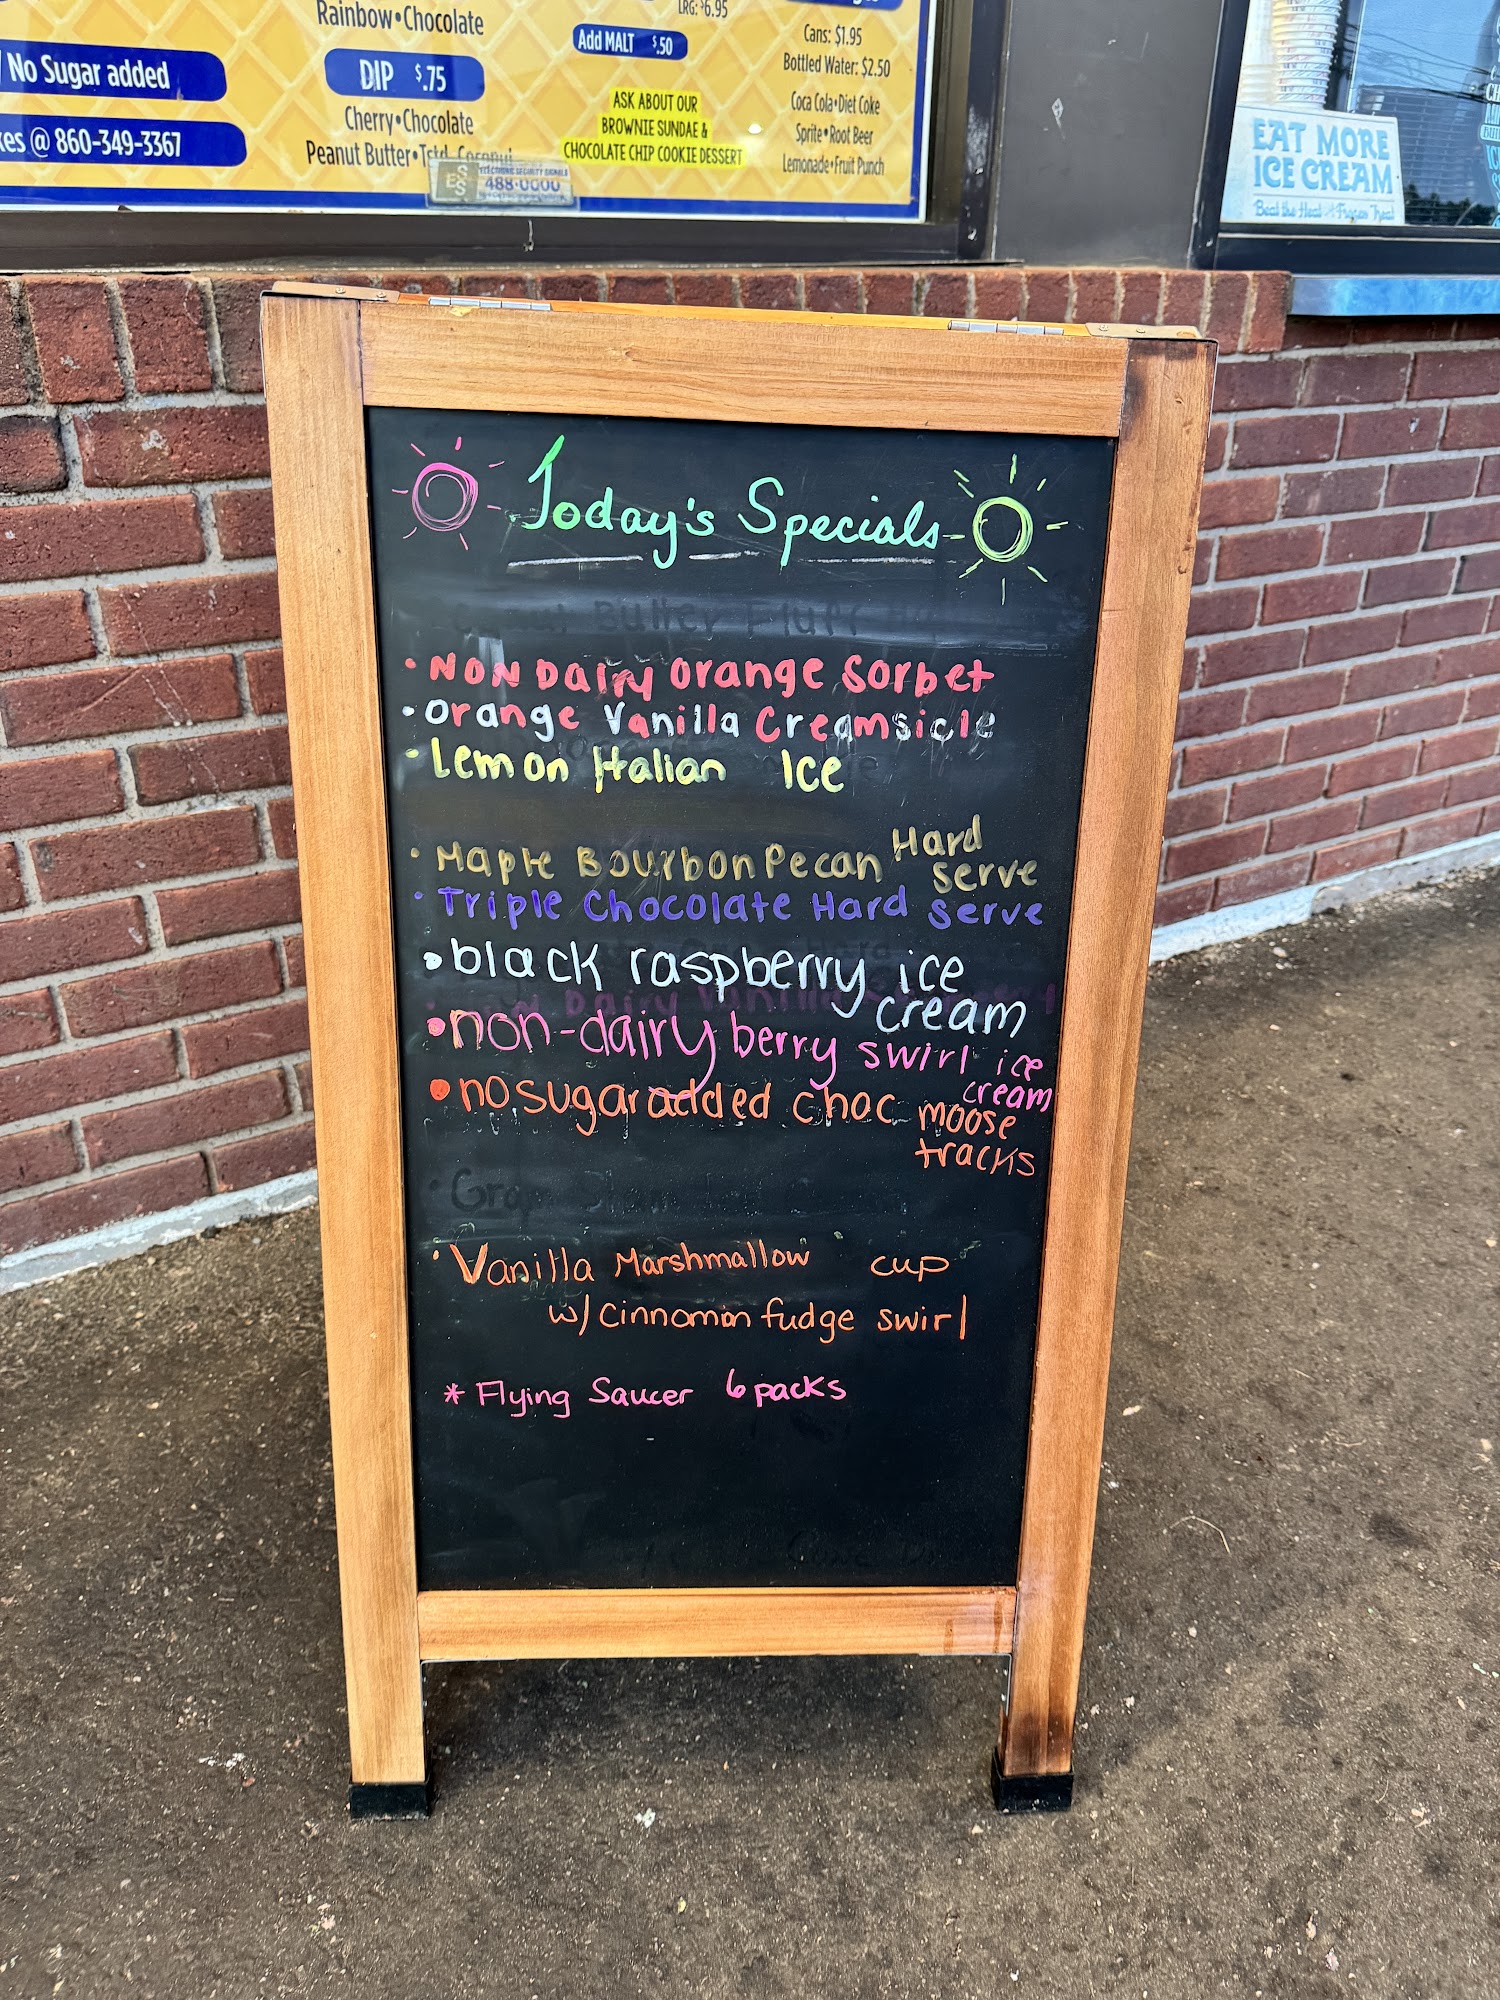 Rainbow•Chocolate
LRG: $6.95
No Sugar added
DIP $.75
Add MALT $.50
Cans: $1.95
Bottled Water: $2.50
@ 860-349-3367
Cherry•Chocolate
Peanut Butter•
ASK ABOUT OUR
BROWNIE SUNDAE &
CHOCOLATE CHIP COOKIE DESSERT
Coca Cola•Diet Coke
Sprite•Root Beer
Lemonade•Fruit Punch
ELECTRONIC SECURITY SIGNALS
488-0000
EAT MORE
ICE CREAM
Beat the Heat Frozen Treat
Today's Specials
•NON DAIRY Orange Sorbet
•Orange Vanilla Creamsicle
•Lemon Italian Ice
•Maple Bourbon Pecan Hard
Serve
•Triple Chocolate Hard Serve
•black raspberry ice
cream
•non-dairy berry swirl ice
cream
•no sugar added choc moose
tracks
•Vanilla Marshmallow cup
w/ cinnomon fudge swirl
* Flying Saucer 6 packs